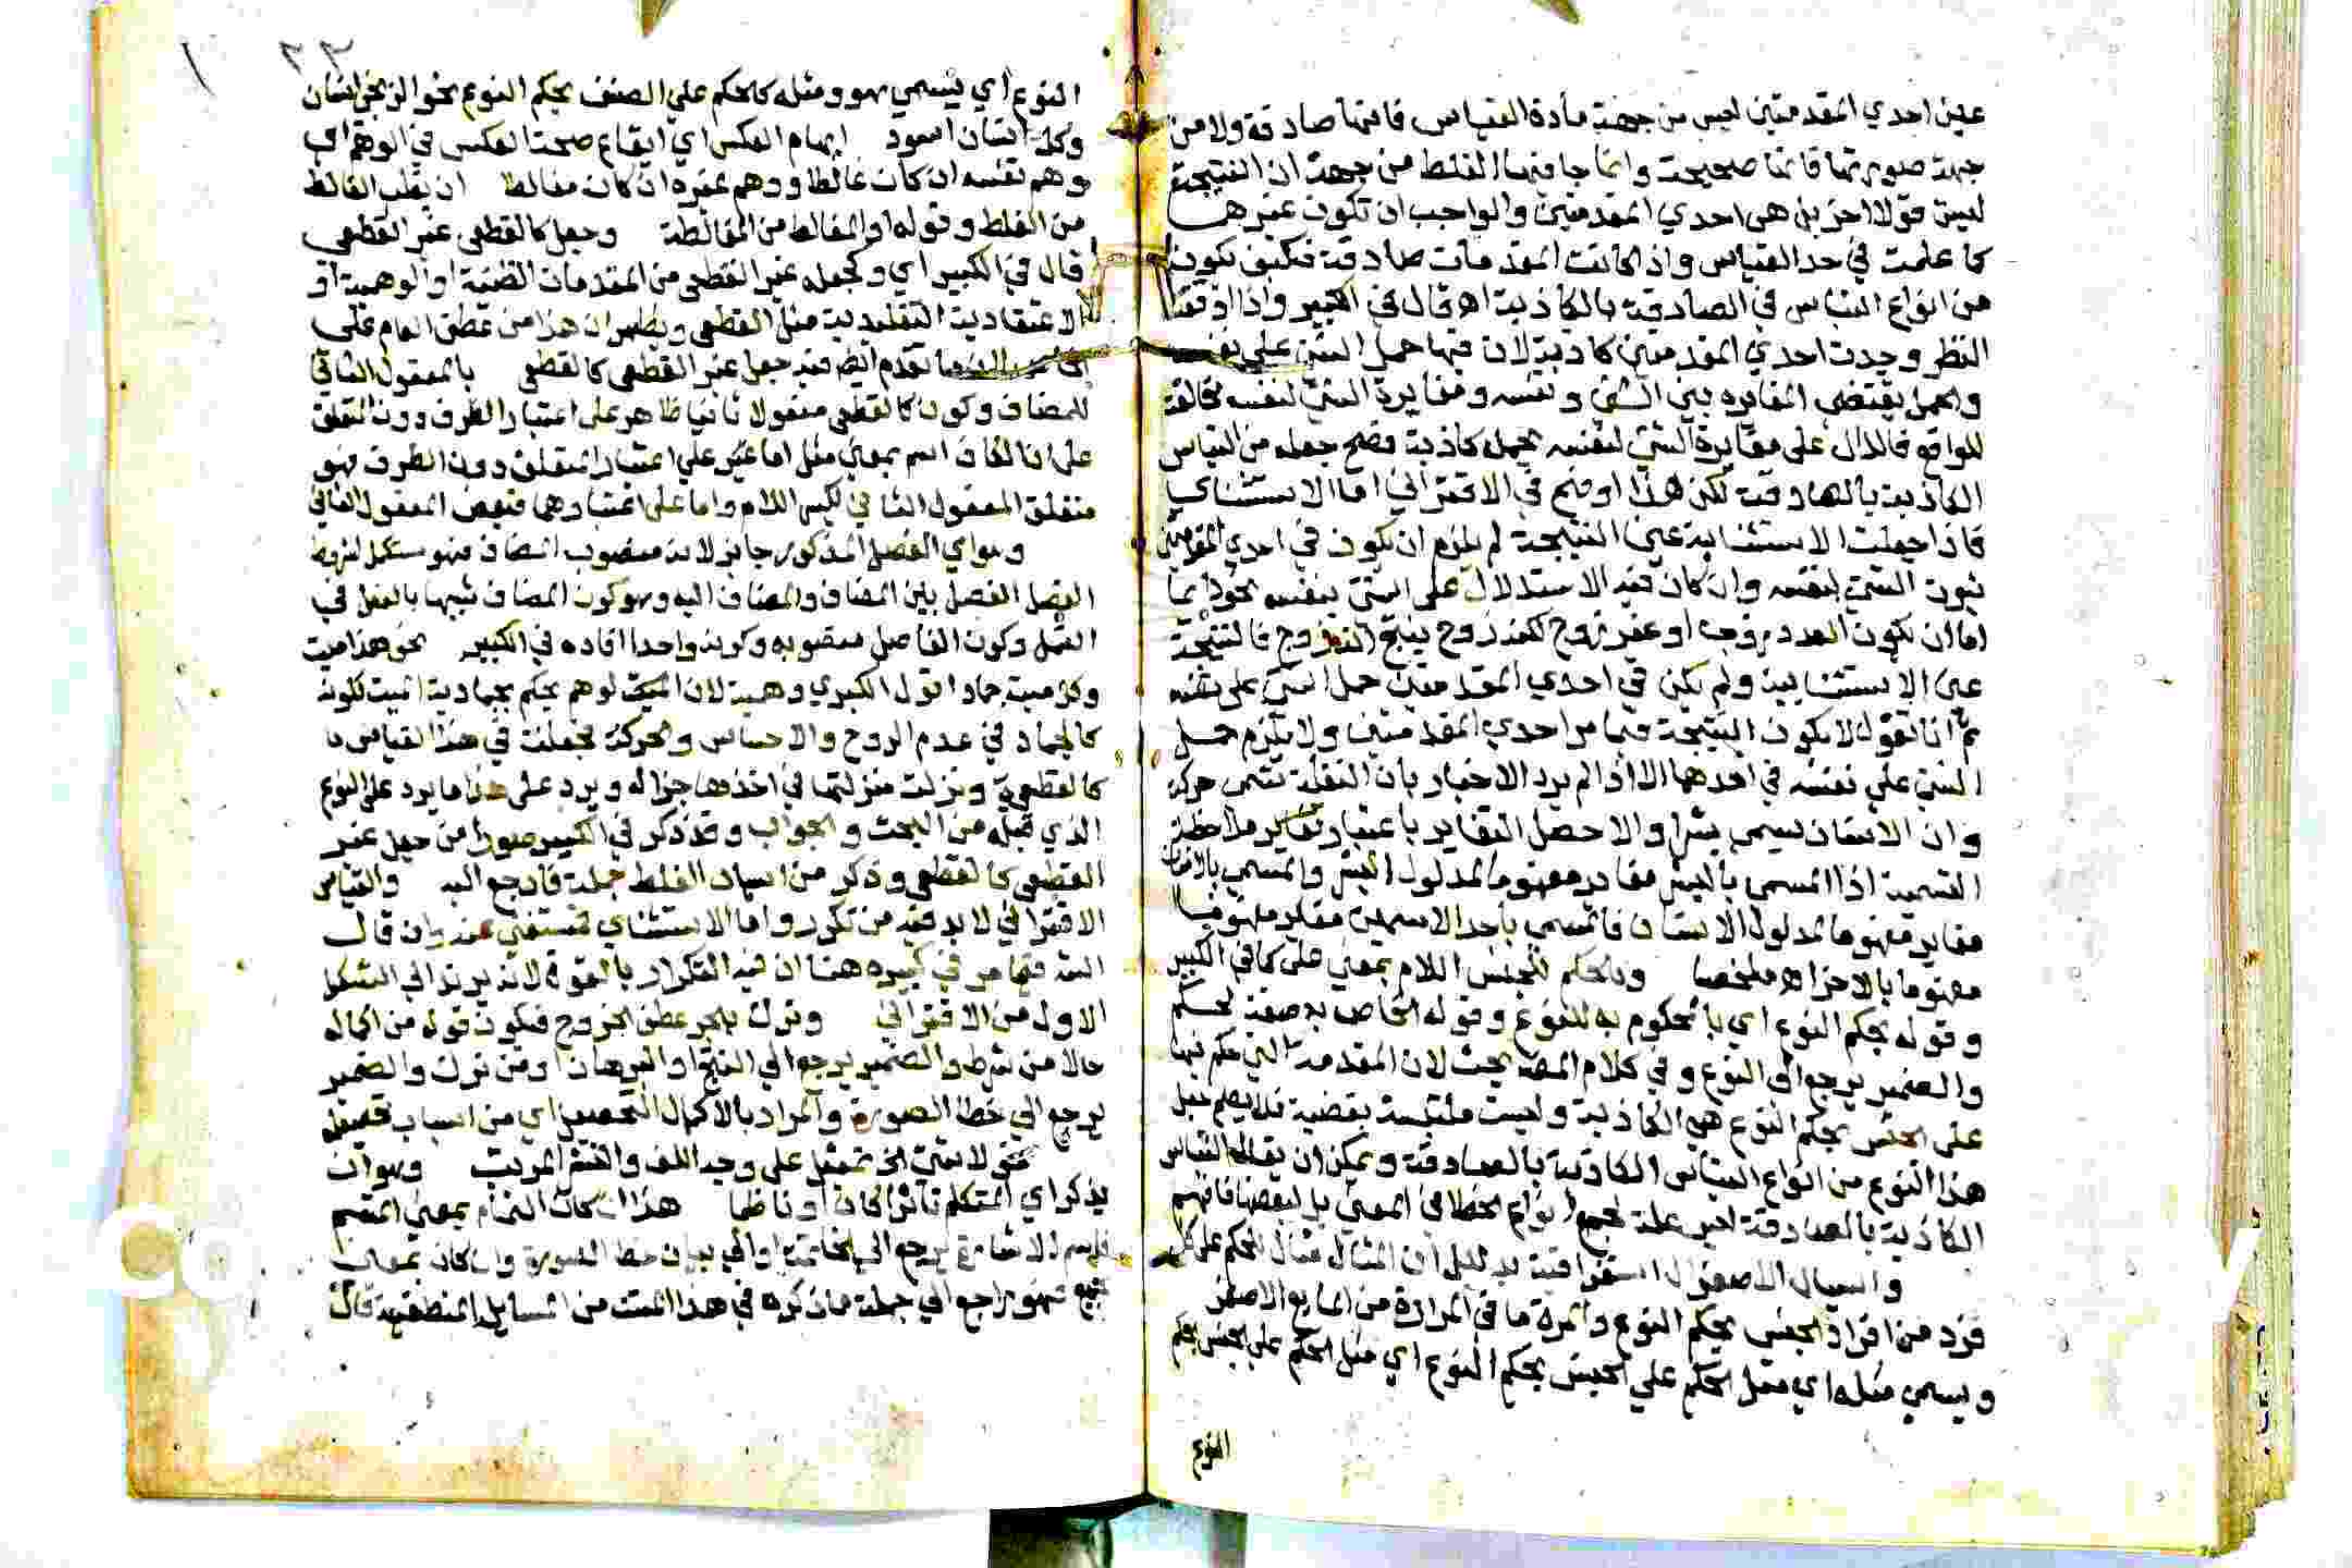 عين احدي المقدمتين ليس من جهة مادة القياس فانها صادقة ولا من
جهة صورتها فانها صحيحة وانما جا فيها الغلط من جهة ان النتيجة
ليست قولا اخر بل هي احدي المقدمتين والواجب ان تكون غيرهما
كما علمت في حد القياس واذ اكانت المقدمات صادقة فكيف تكون
من انواع التباس في الصادقة بالكاذبة اه قال في الكبير واذا دققنا
النظر وجدت احدي المقدمتين كاذبة لان فيها حمل الشي علي نفسه
والحمل يقتضي المغايره بين الشي ونفسه ومغايرة الشي لنفسه مخالفة
للواقع فالدال علي مغايرة الشي لنفسه بحمل كاذبة فصح جعله من التباس
الكاذبة بالصادقة لكن هذا اوضح في الاقتراني اما الاستثناي
فاذا جعلت الاستثنايية عين النتيجة لم يلزم ان يكون في احدي المقدمتين
ثبوت الشي لنفسه وان كان فيه الاستدلال علي الشي بنفسه نحو
اما ان يكون العدد زوجا او غير زوج لكنه زوج ينتج انه زوج فالنتيجة
عين الاستثنايية ولم يكن في احدي المقدمتين حمل الشي علي نفسه
ثم انا نقول لا يكون النتيجة فيما مر احدي المقدمتين ولا يلزم حمل
الشي علي نفسه في احدهما الا اذا لم يرد الاخبار بان النقلة تسمي حركة
وان الانسان يسمي بشرا والا حصل التغاير باعتبار ملاحظة
التسمية اذ المسمي بالبشر مغاير مفهومه لمدلول البشر والمسمي بالانسان
مغاير مفهومه لمدلول الانسان فالمسمي باحد الاسمين مغاير مفهومه
مفهومه بالاخر اه ملخصا وكالحكم للجنس اللام بمعني علي كما في الكبير
وقوله بحكم النوع اي بالمحكوم به للنوع وقوله الخاص به صفة لحكم
والضمير يرجع الي النوع وفي كلام المص بحث لان المقدمة التي حكم فيها
علي الجنس بحكم النوع هي الكاذبة وليست ملتبسة بقضية فلا يصح جعل
هذا النوع من انواع التباس الكاذبة بالصادقة ويمكن ان يقال التباس
الكاذبة بالصادقة ليس علة لجميع انواع الخطا في المعني بل لبعضها فافهم
والسيال الاصفر ال استغراقية بدليل ان المثال مثال للحكم علي كل
فرد من افراد الجنس بحكم النوع والمرة ما في المرارة من المايع الاصفر
ويسمي مثله اي مثل الحكم علي الجنس بحكم النوع اي مثل الحكم علي الجنس بحكم
النوع
٣٣
النوع اي يسمي هو ومثله كالحكم علي الصنف بحكم النوع نحو الزنجي انسان
وكل انسان اسود ايهام العكس اي ايقاع صحة العكس في الوهم اي
وهم نفسه ان كان غالطا ووهم غيره ان كان مغالطا ان يغلب الغالط
من الغلط وقوله او المغالط من المغالطة وجعل كالقطعي غير القطعي
قال في الكبير اي وكجعله غير القطعي من المقدمات الظنية او الوهمية او
الاعتقادية التقليدية مثل القطعي ويظهر ان هذا من عطف العام علي
تقدم ايضا فيه جعل غير القطعي كالقطعي بالمفعول الثاني
للمضاف وكون كالقطعي مفعولا ثانيا ظاهر علي اعتبار الظرف دون المتعلق
علي ان الكاف اسم بمعني مثل اما علي اعتبار المتعلق دون الظرف فهو
متعلق المفعول الثاني بكسر اللام واما علي اعتبارهما فبعض المفعول الثاني
وهو اي الفصل المذكور جايز لانه منصوب المضاف فهو مستكمل لشروط
الفصل الفصل بين المضاف والمضاف اليه وهو كون المضاف شبيها بالفعل في
العمل وكون الفاصل منصوبه وكونه واحدا افاده في الكبير نحو هذا ميت
وكل ميت جماد اقول الكبري وهمية لان الوهم يحكم بجمادية الميت لكونه
كالجماد في عدم الروح والاحساس والحركة فجعلت في هذا القياس
كالقطعية ونزلت منزلتها في اخذها جزا له ويرد علي هذا ما يرد علي النوع
الذي قبله من البحث والجواب وقد ذكر في الكبير صورا من جعل غير
القطعي كالقطعي وذكر من اسباب الغلط جملة فارجع اليه والقياس
الاقتراني لا بد فيه من تكرر واما الاستثناي فمستغني عنه وان قال
فيما مر في كبيره هنا ان فيه التكرار بالقوة لانه يرتد الي الشكل
الاول من الاقتراني وترك بالجر عطف الخروج فيكون قوله من اكماله
حالا من شرط والضمير يرجع الي النتيج او البرهان او من ترك والضمير
يرجع الي خطا الصورة والمراد بالاكمال التحصيل اي من اسباب تحصيله
نحو لا شي الخ تمثيل علي وجه اللف والنشر المرتب وهو ان
يذكر اي المتكلم ناثرا كان او ناظما هذا ان كان التمام بمعني المتمم
فاسم الاشارة يرجع الي الخاتمة او الي بيان خطا الصورة وان كان بمعني
فهو راجع الي جملة ما ذكره في هذا المتن من المسايل المنطقية قال